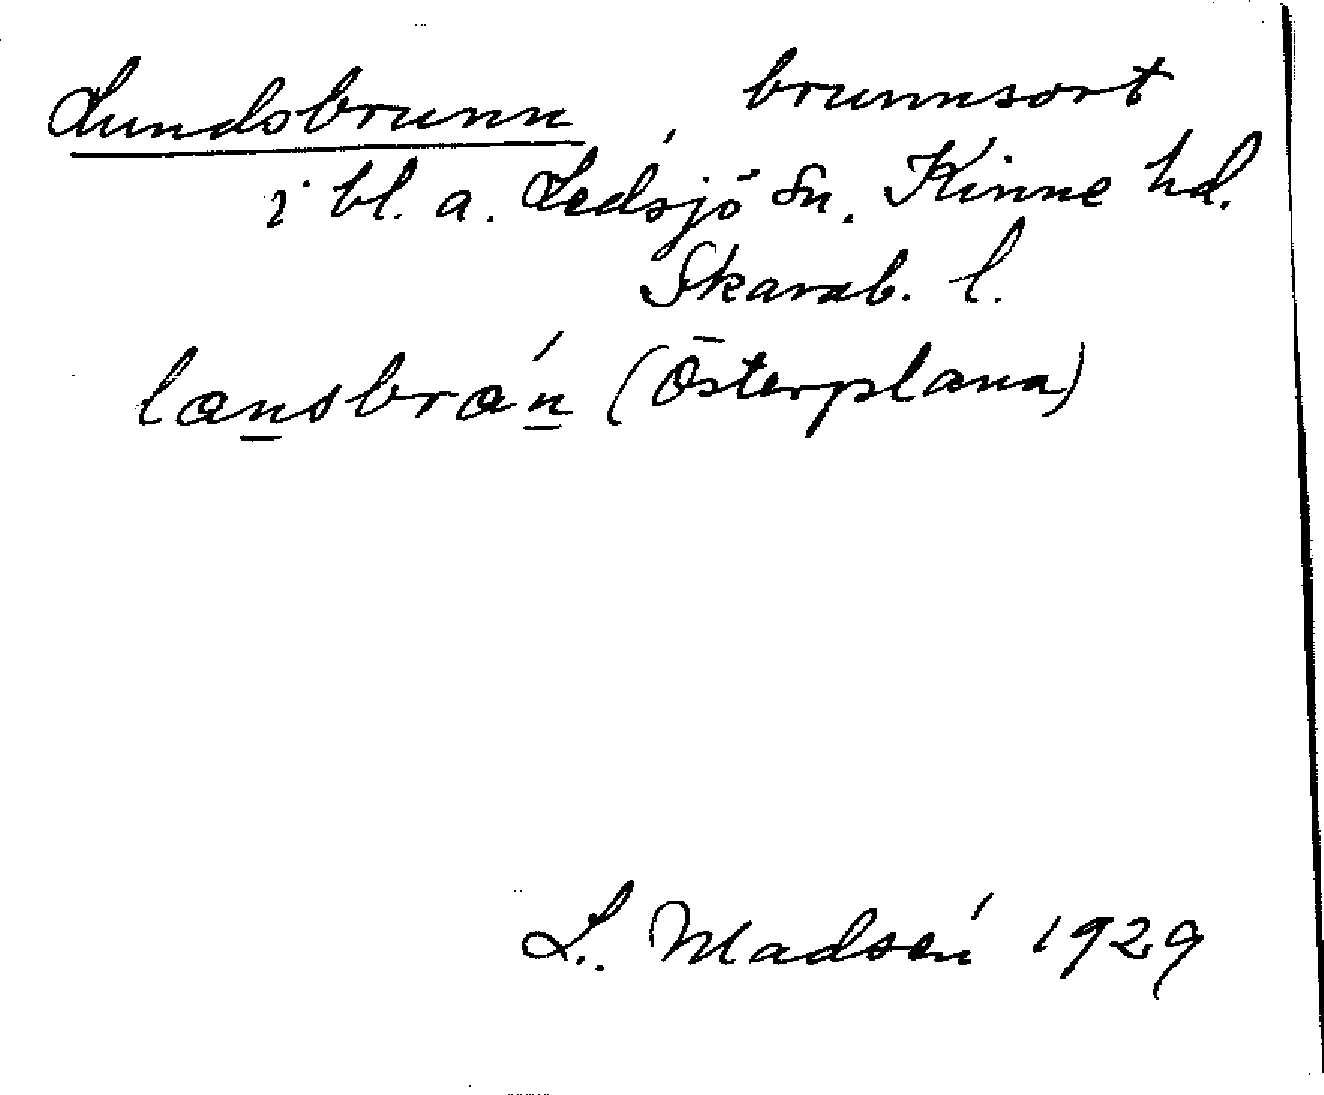 Lundsbrunn brunnsort
i bl. a. Ledsjö sn. Kinne hd.
Skarab. l.
lansbrán (Österplana)
L. Madsén 1929